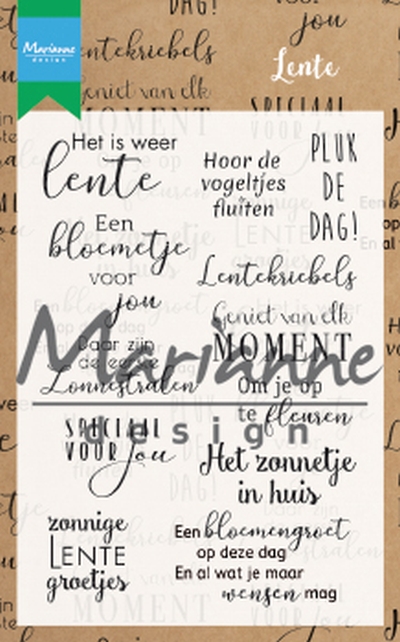 DAG!
jou
Marianne
design
Lentekriebels
Geniet van elk
MOMENT
Lente
SPECIAAL
Het is weer
lente
Hoor de
vogeltjes
fluiten
PLUK
DE
DAG!
Een
bloemetje
voor
jou
Lentekriebels
Geniet van elk
MOMENT
Daar zijn
de eerste
Zonnestralen
Om je op
te fleuren
Marianne
design
SPECIAAL
VOOR jou
Het zonnetje
in huis
zonnige
LENTE
groetjes
Een bloemengroet
op deze dag
En al wat je maar
wensen mag